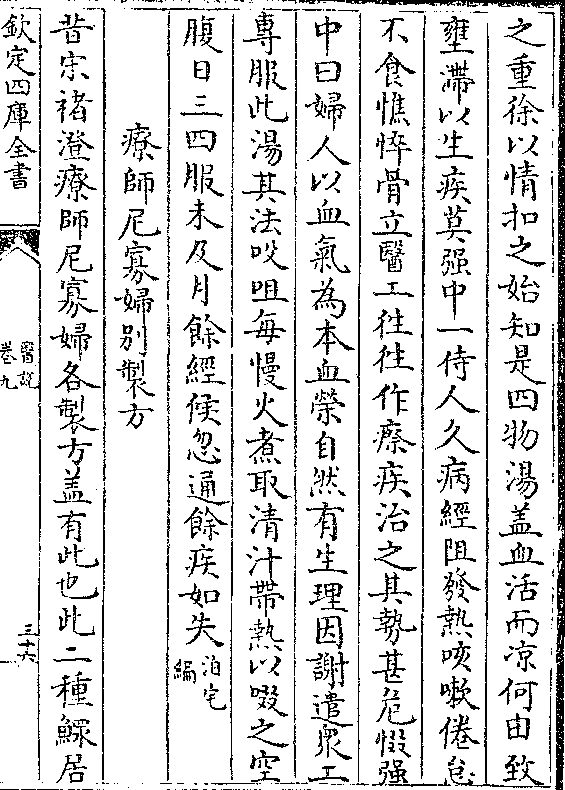 之重徐以情扣之始知是四物湯盖血活而凉何由致
壅滯以生疾莫强中一侍人久病經阻發熱咳嗽倦怠
不食憔悴骨立醫工徃徃作瘵疾治之其勢甚危惙强
中曰婦人以血氣為本血榮自然有生理因謝遣衆工
專服此湯其法㕮咀每慢火煮取清汁帶熱以啜之空
腹日三四服未及月餘經候忽通餘疾如失泊宅編
療師尼寡婦别製方
昔宋褚澄療師尼寡婦各製方盖有此也此二種鰥居
欽定四庫全書
醫說
卷九
三十六